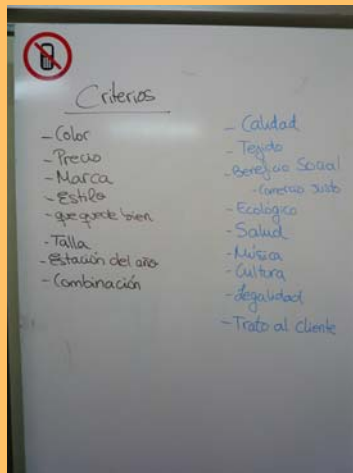 Criterios
- Color
- Precio
- Marca
- Estilo
- que quede bien
- Talla
- Estación del año
- Combinación
- Calidad
- Tejido
- Beneficio Social
- Comercio Justo
- Ecológico
- Salud
- Música
- Cultura
- Legalidad
- Trato al cliente